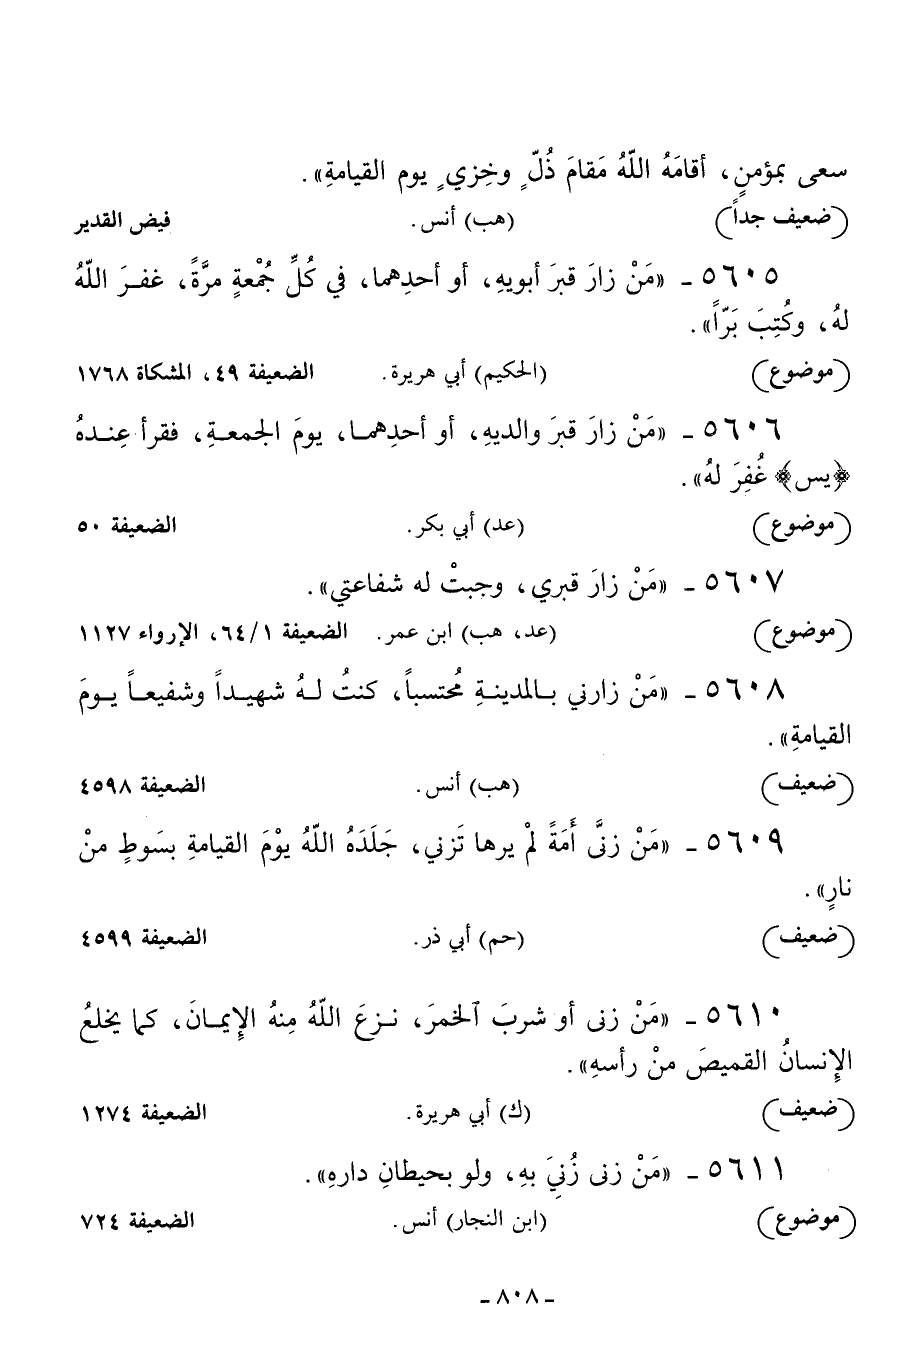 سعى بمؤمنٍ، أقامَهُ اللّهُ مَقامَ ذُلّ ٍ وخِزي ٍ يوم القيامةِ» .
(ضعيف جداً) (هب) أنس. فيض القدير
٥٦٠٥ ـ «مَنْ زارَ قبرَ أبويهِ، أو أحدِهما، في كُلِّ جُمْعةٍ مرَّةً، غفـرَ اللّهُ
لهُ، وكُتِبَ بَرّاً» .
(موضوع) (الحكيم) أبي هريرة. الضعيفة ٤٩، المشكاة ١٧٦٨
٥٦٠٦ ـ «مَنْ زارَ قبرَ والديهِ، أو أحدِهمـا، يومَ الجمعـةِ، فقرأ عِنـدهُ
﴿يس﴾ غُفِرَ لهُ» .
(موضوع) (عد) أبي بكر. الضعيفة ٥٠
٥٦٠٧ ـ «مَنْ زارَ قبري، وجبتْ له شفاعتي» .
(موضوع) (عد، هب) ابن عمر. الضعيفة ٦٤/١، الإرواء ١١٢٧
٥٦٠٨ ـ «مَنْ زارني بـالمدينـةِ مُحتسباً، كنتُ لـهُ شهيـداً وشفيعـاً يـومَ
القيامةِ» .
(ضعيف) (هب) أنس. الضعيفة ٤٥٩٨
٥٦٠٩ ـ «مَنْ زنىَّ أَمَةً لمْ يرها تَزني، جَلَدَهُ اللّهُ يوْمَ القيامةِ بسَوطٍ منْ
نارٍ» .
(ضعيف) (حم) أبي ذر. الضعيفة ٤٥٩٩
٥٦١٠ ـ «مَنْ زنى أو شربَ ٱلخمرَ، نـزعَ اللّهُ مِنهُ الإِيمـانَ، كما يخلعُ
الإِنسانُ القميصَ منْ رأسهِ» .
(ضعيف) (ك) أبي هريرة. الضعيفة ١٢٧٤
٥٦١١ ـ «مَنْ زنى زُنيَ بهِ، ولو بحيطانِ دارهِ» .
(موضوع) (ابن النجار) أنس. الضعيفة ٧٢٤
ـ ٨٠٨ ـ